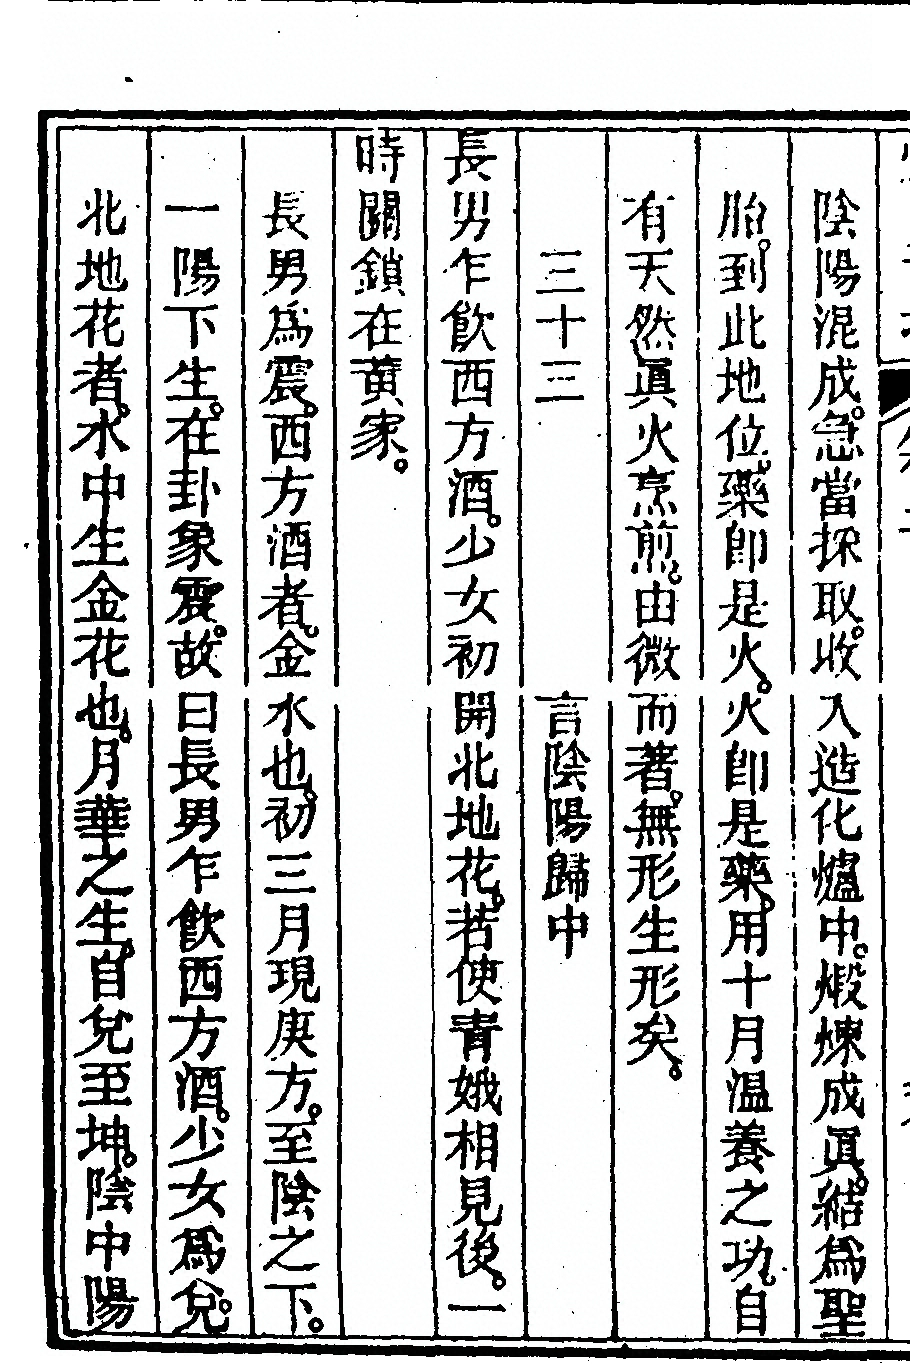 陰陽混成。急當採取。收入造化爐中。煅煉成眞。結爲聖
胎。到此地位。藥卽是火。火卽是藥。用十月溫養之功。自
有天然眞火烹煎。由微而著。無形生形矣。
三十三 言陰陽歸中
長男乍飲西方酒。少女初開北地花。若使青娥相見後。一
時關鎖在黃家。
長男爲震。西方酒者。金水也。初三月現庚方。至陰之下。
一陽下生。在卦象震。故曰長男乍飲西方酒。少女爲兌。
北地花者。水中生金花也。月華之生。自兌至坤。陰中陽